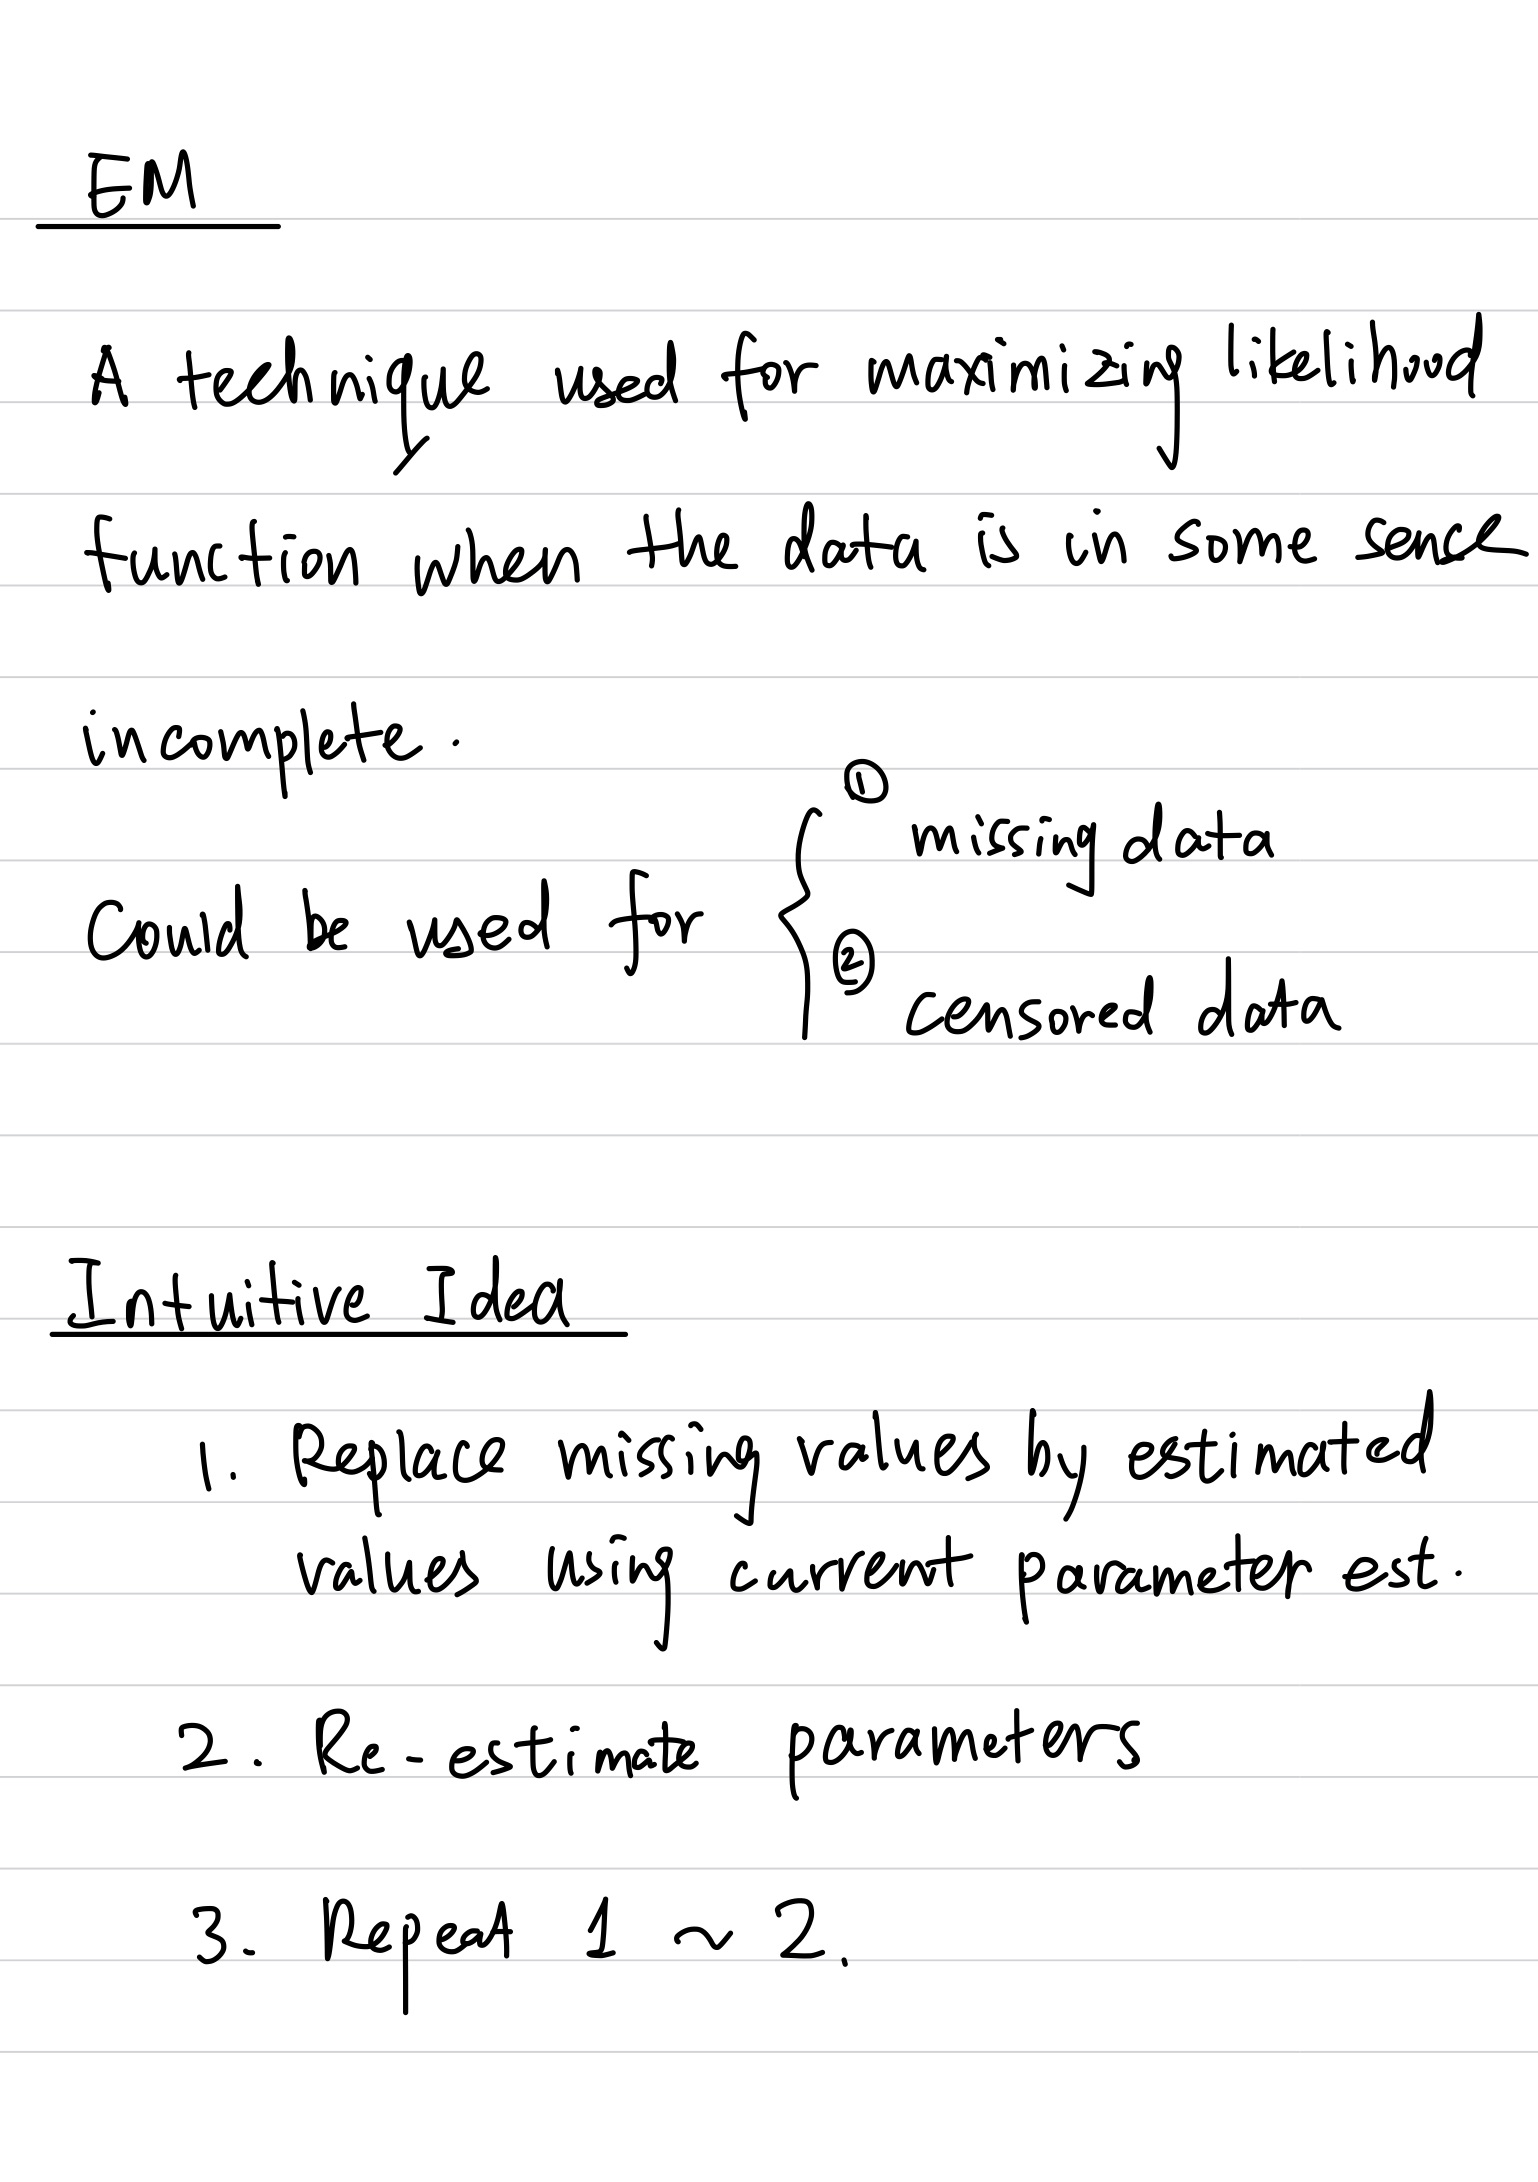 EM
A technique used for maximizing likelihood
function when the data is in some sence
incomplete.
① missing data
Could be used for {
② censored data
Intuitive Idea
1. Replace missing values by estimated
values using current parameter est.
2. Re-estimate parameters
3. Repeat 1 ~ 2.